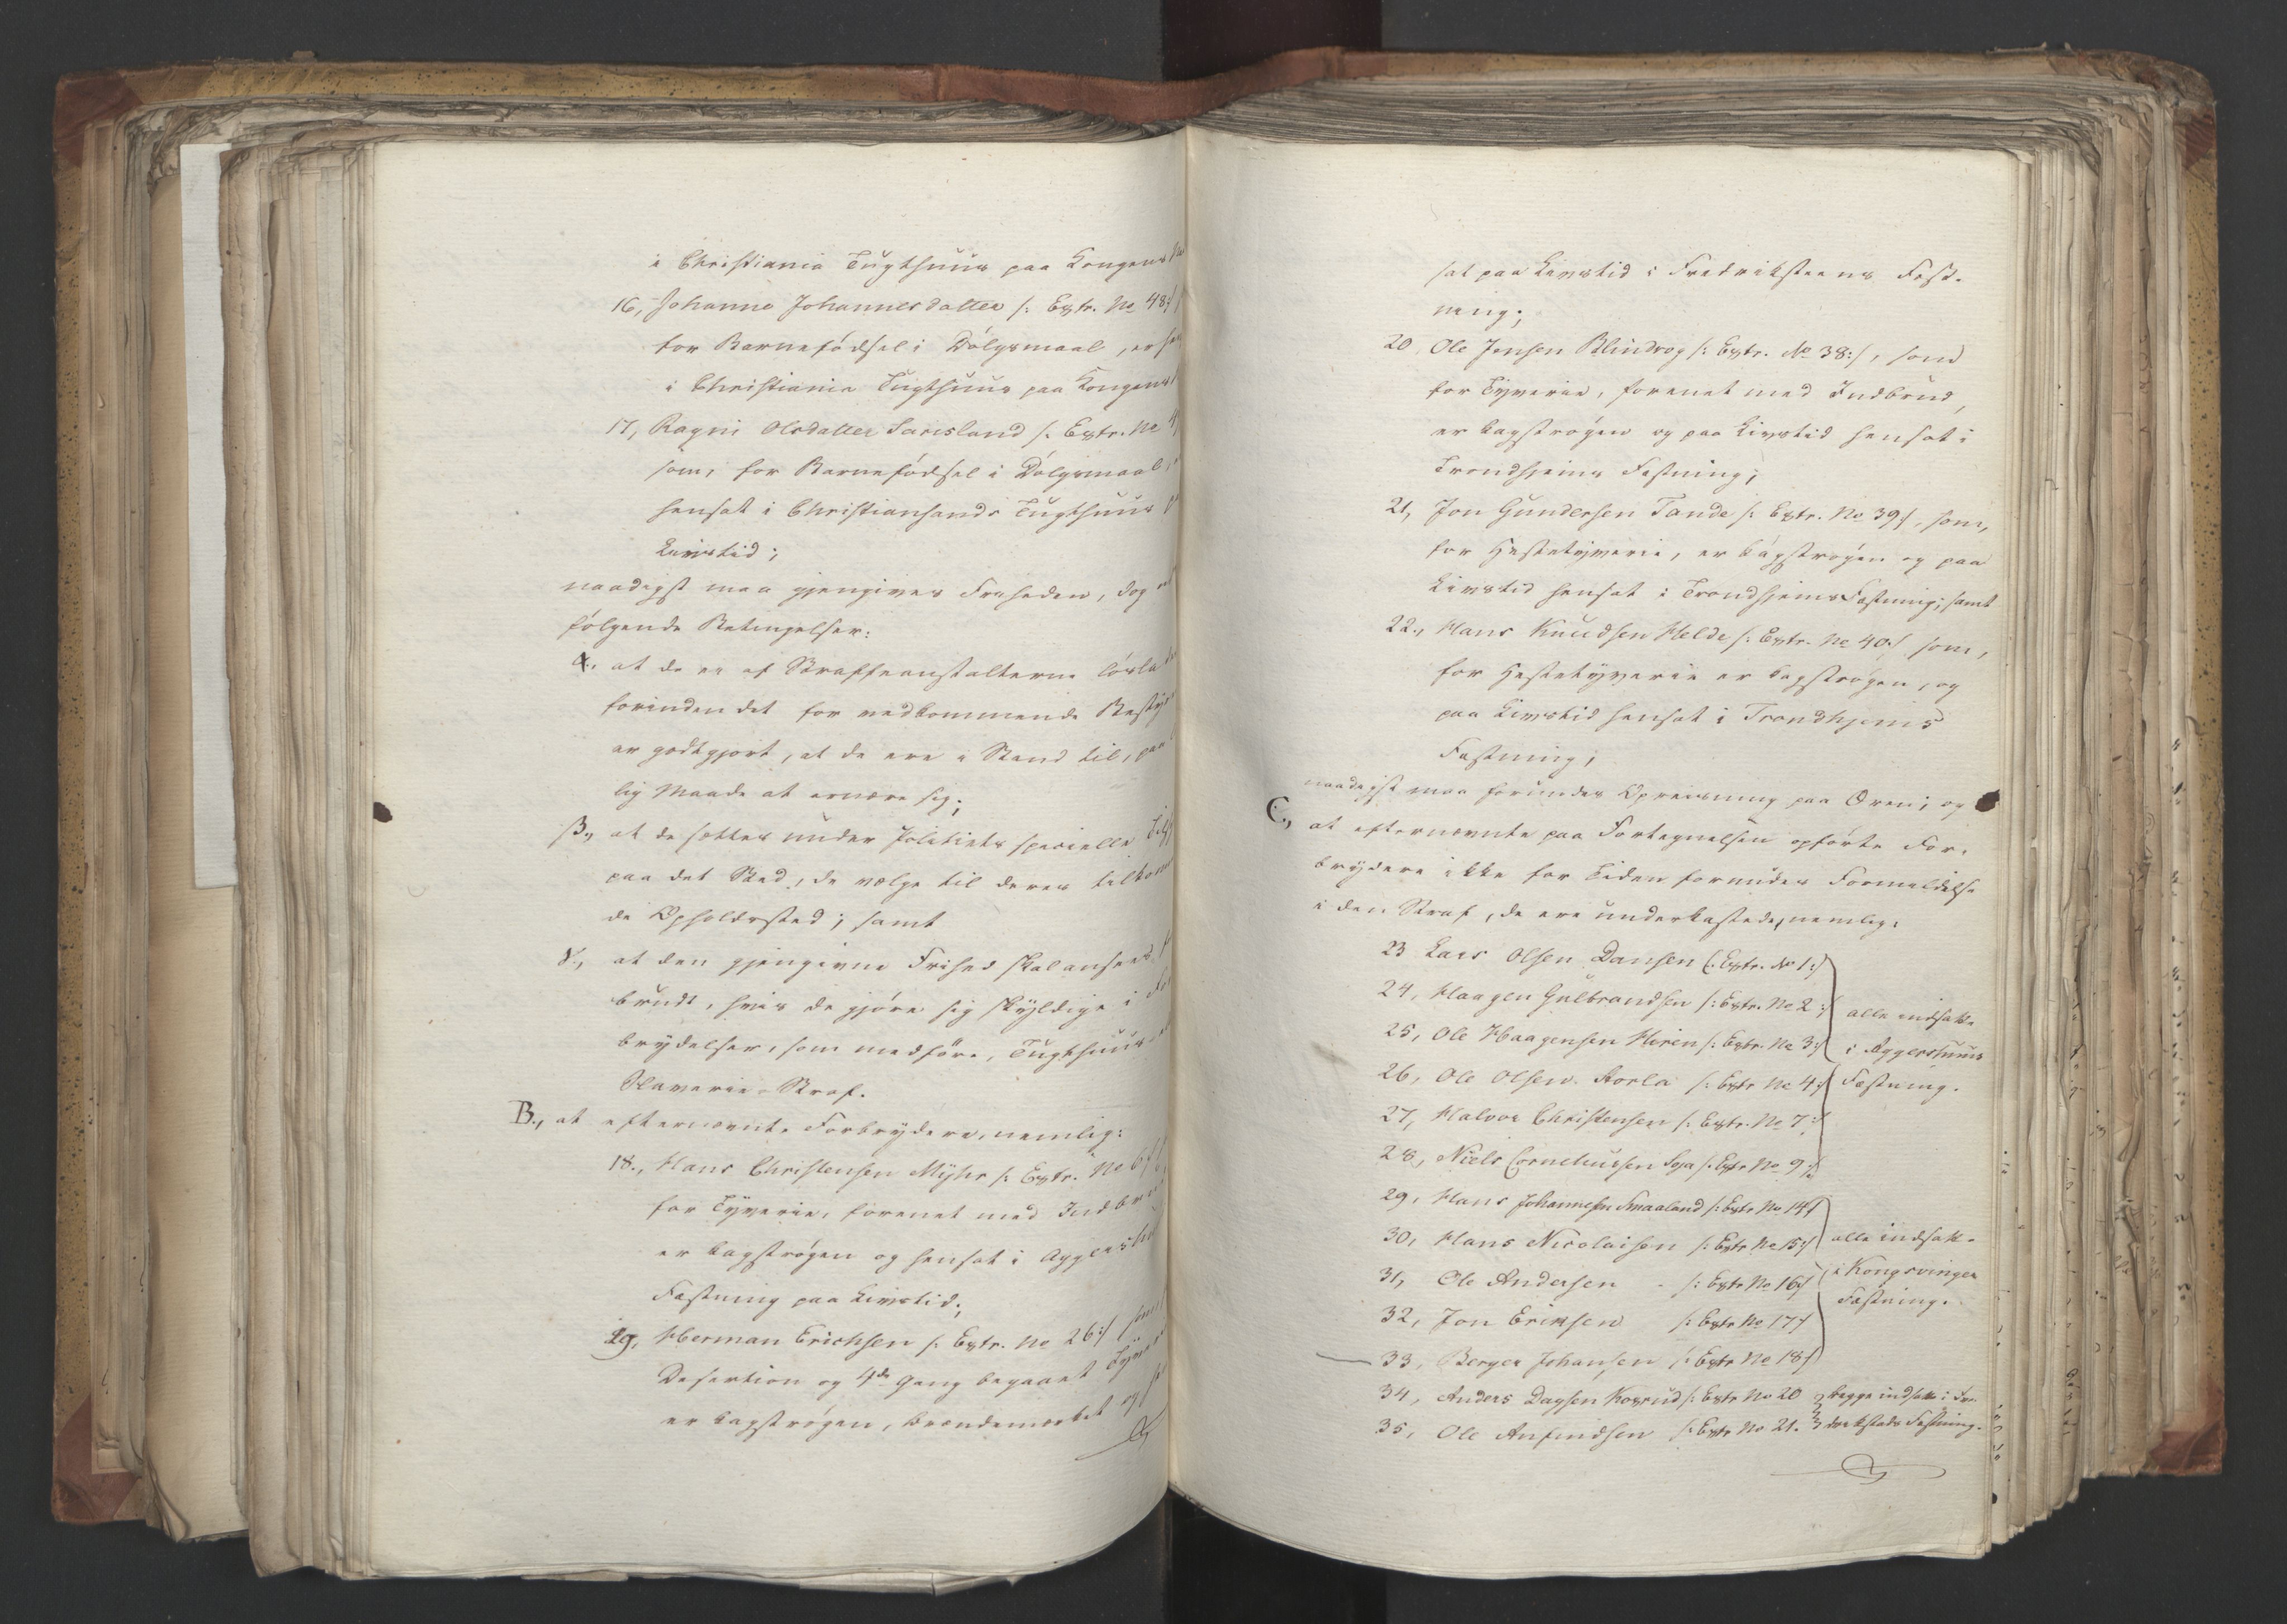 i Christiania Tugthuus paa Kongens
16, Johanne Johannesdatter /: Extr. No 48:/
for Barnefødsel i Dølgsmaal, er
i Christiania Tugthuus paa Kongens
17, Ragni Olsdatter Sarisland /: Extr. No
som, for Barnefødsel i Dølgsmaal,
hensat i Christiansands Tugthuus
Livstid;
naadigst maa gjengives Friheden, dog
følgende Betingelser:
α., at de ei af Straffeanstalterne løsla
forinden det for vedkommende Besty
er godtgjort, at de ere i Stand til, paa
lig Maade at ernære sig;
β., at de sættes under Politiets specielle Tils
paa det Sted, de vælge til deres tilkom
de Opholdssted; samt
γ., at den gjengivne Frihed skal ansees
brudt, hvis de gjøre sig skyldige i
brydelser, som medføre, Tugthuus
Slaverie-Straf.
B., at efternævnte Forbrydere, nemlig:
18., Hans Christensen Myhr /: Extr. No 6
for Tyverie, forenet med Indbru
er kagstrøgen og hensat i Aggershu
Fæstning paa Livstid;
19, Herman Erichsen /: Extr. No 26:/ som
Desertion og 4de Gang begaaet Tyve
er kagstrøgen, brændemærket og
sat paa Livstid i Fredriksteens Fæst-
ning;
20 Ole Jensen Blindrog /: Extr. No 38:/, som
for Tyverie, forenet med Indbrud,
er kagstrøgen og paa Livstid hensat i
Trondhjems Fæstning;
21, Jon Gundersen Tande /: Extr. No 39:/, som,
for Hestetyverie, er kagstrøgen og paa
Livstid hensat i Trondhjems Fæstning; samt
22., Hans Knudsen Helde /: Extr. No 40:/ som,
for Hestetyverie er kagstrøgen, og
paa Livstid hensat i Trondhjems
Fæstning;
naadigst maa forundes Opreisning paa Æren; og
C., at efternævnte paa Fortegnelsen opførte For-
brydere ikke for Tiden forundes Formildelse
i den Straf, de ere underkastede, nemlig:
23 Lars Olsen Dansen /: Extr. No 1:/
24, Haagen Gulbrandsen /: Extr. No 2:/ alle indsatte
25, Ole Haagensen Hiren /: Extr. No 3:/ i Aggershuus
26, Ole Olsen Korla /: Extr No 4:/ Fæstning.
27, Halvor Christensen /: Extr. No 7:/
28, Niels Corneliussen Soja /: Extr No 9:/
29, Hans Johannesen Smaaland /: Extr No 14:/
30, Hans Nicolaisen /: Extr No 15:/ alle indsatte
31, Ole Andersen - /: Extr No 16:/ i Kongsvinger
32, Jon Eriksen /: Extr No 17:/ Fæstning.
33, Berger Johansen /: Extr No 18:/
34, Anders Dagsen Kosrud /: Extr No 20 begge indsatte i Fre-
35, Ole Anfindsen /: Extr No 21. drikstads Fæstning.